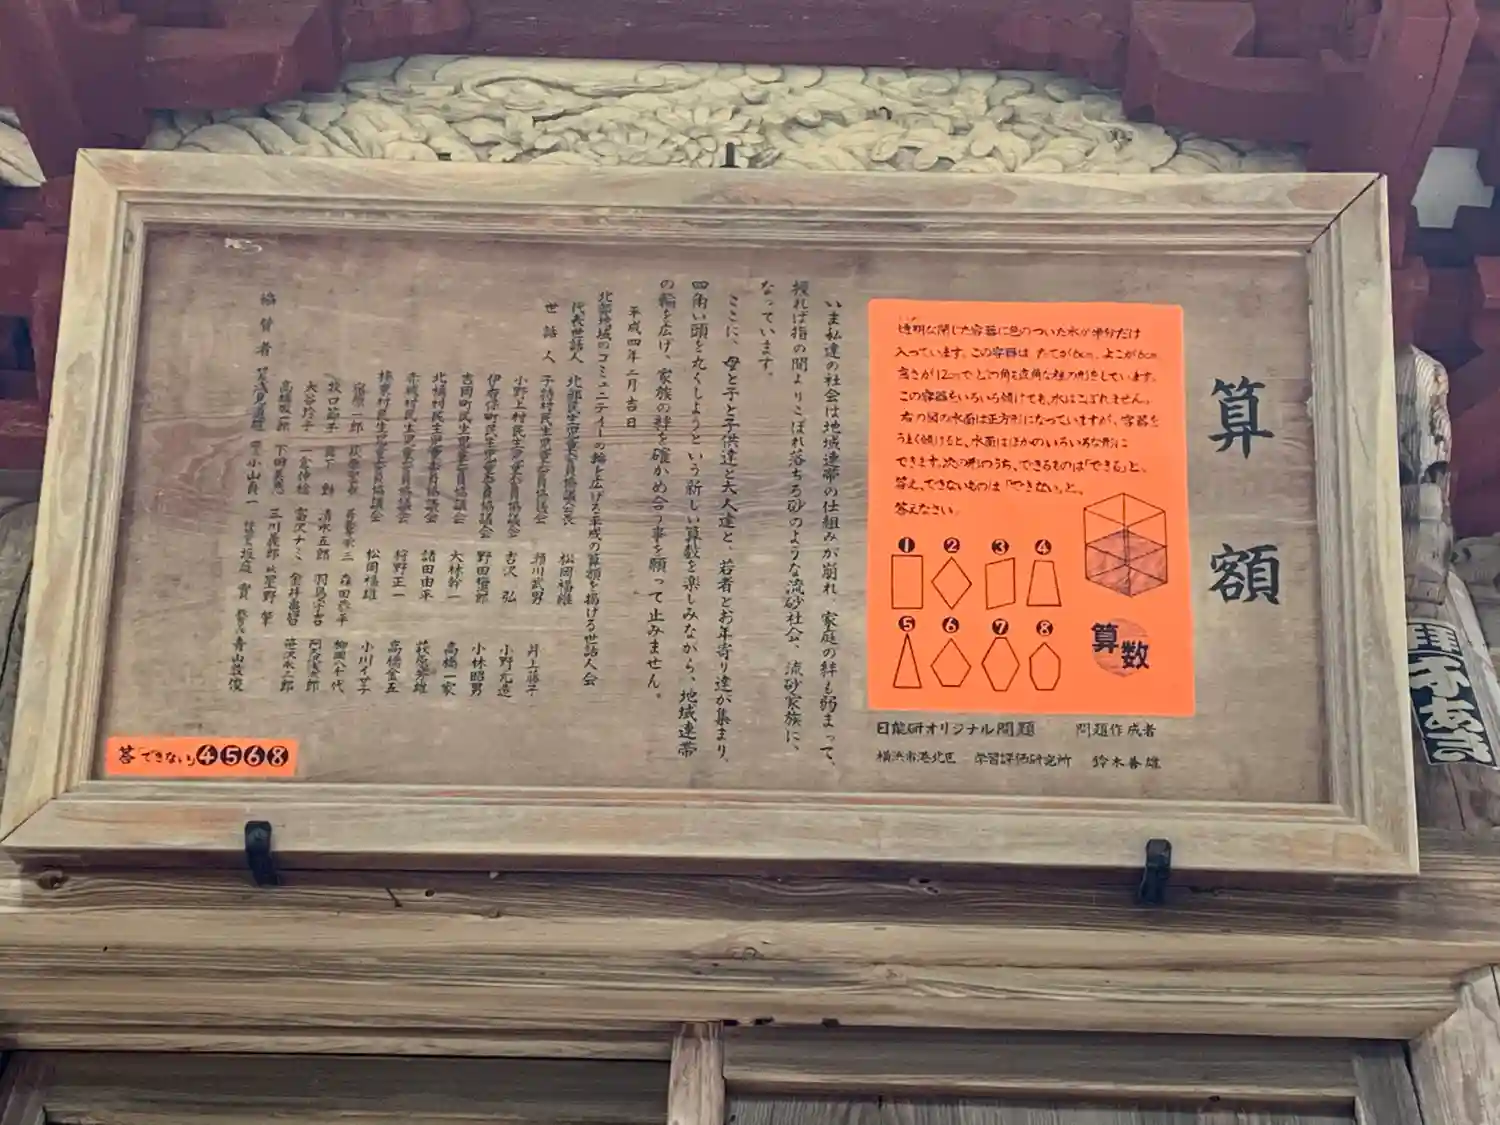 算額
透明な閉じた容器に色のついた水が半分だけ
入っています。この容器は たてが6cm、よこが6cm
高さが12cmで どの角も直角な柱の形をしています。
この容器をいろいろ傾けても、水はこぼれません。
右の図の水面は正方形になっていますが、容器を
うまく傾けると、水面はほかのいろいろな形に
できます。次の形のうち、できるものは「できる」と。
答え、できないものは「できない」と。
答えなさい。
❶ ❷ ❸ ❹
❺ ❻ ❼ ❽
算数
日能研オリジナル問題 問題作成者
横浜市港北区 学習評価研究所 鈴木善雄
いま私達の社会は地域連帯の仕組みが崩れ、家庭の絆も弱まって、
授れば指の間よりこぼれ落ちる砂のような流砂社会、流砂家族に、
なっています。
ここに、母と子と子供達と大人達と、若者とお年寄り達が集まり、
四角い頭を丸くしようという新しい算数を楽しみながら、地域連帯
の輪を広げ、家族の絆を確かめ合う事を願って止みません。
平成四年二月吉日
北部地域のコミュニティーの輪を広げる平成の算額を掲げる世話人会
代表世話人 北部民生児童委員協議会長 松岡福雄
世話人 子持村民生児童委員協議会 須川武男 井上藤子
小野上村民生児童委員協議会 吉沢 弘 小野允造
伊香保町民生児童委員協議会 野田 小林昭男
吉岡町民生児童委員協議会 大林幹一 高橋一家
北橘村民生児童委員協議会 諸田由平
赤城村民生児童委員協議会 狩野正一 高橋金五
榛東村民生児童委員協議会 松岡福雄 小川イサ子
森田 柳岡八千代
牧口節子 清水五郎
大谷玲子 富沢ナミ
三川義郎
協賛者 小山貞一 星野 青山
答 できない ❹❺❻❽